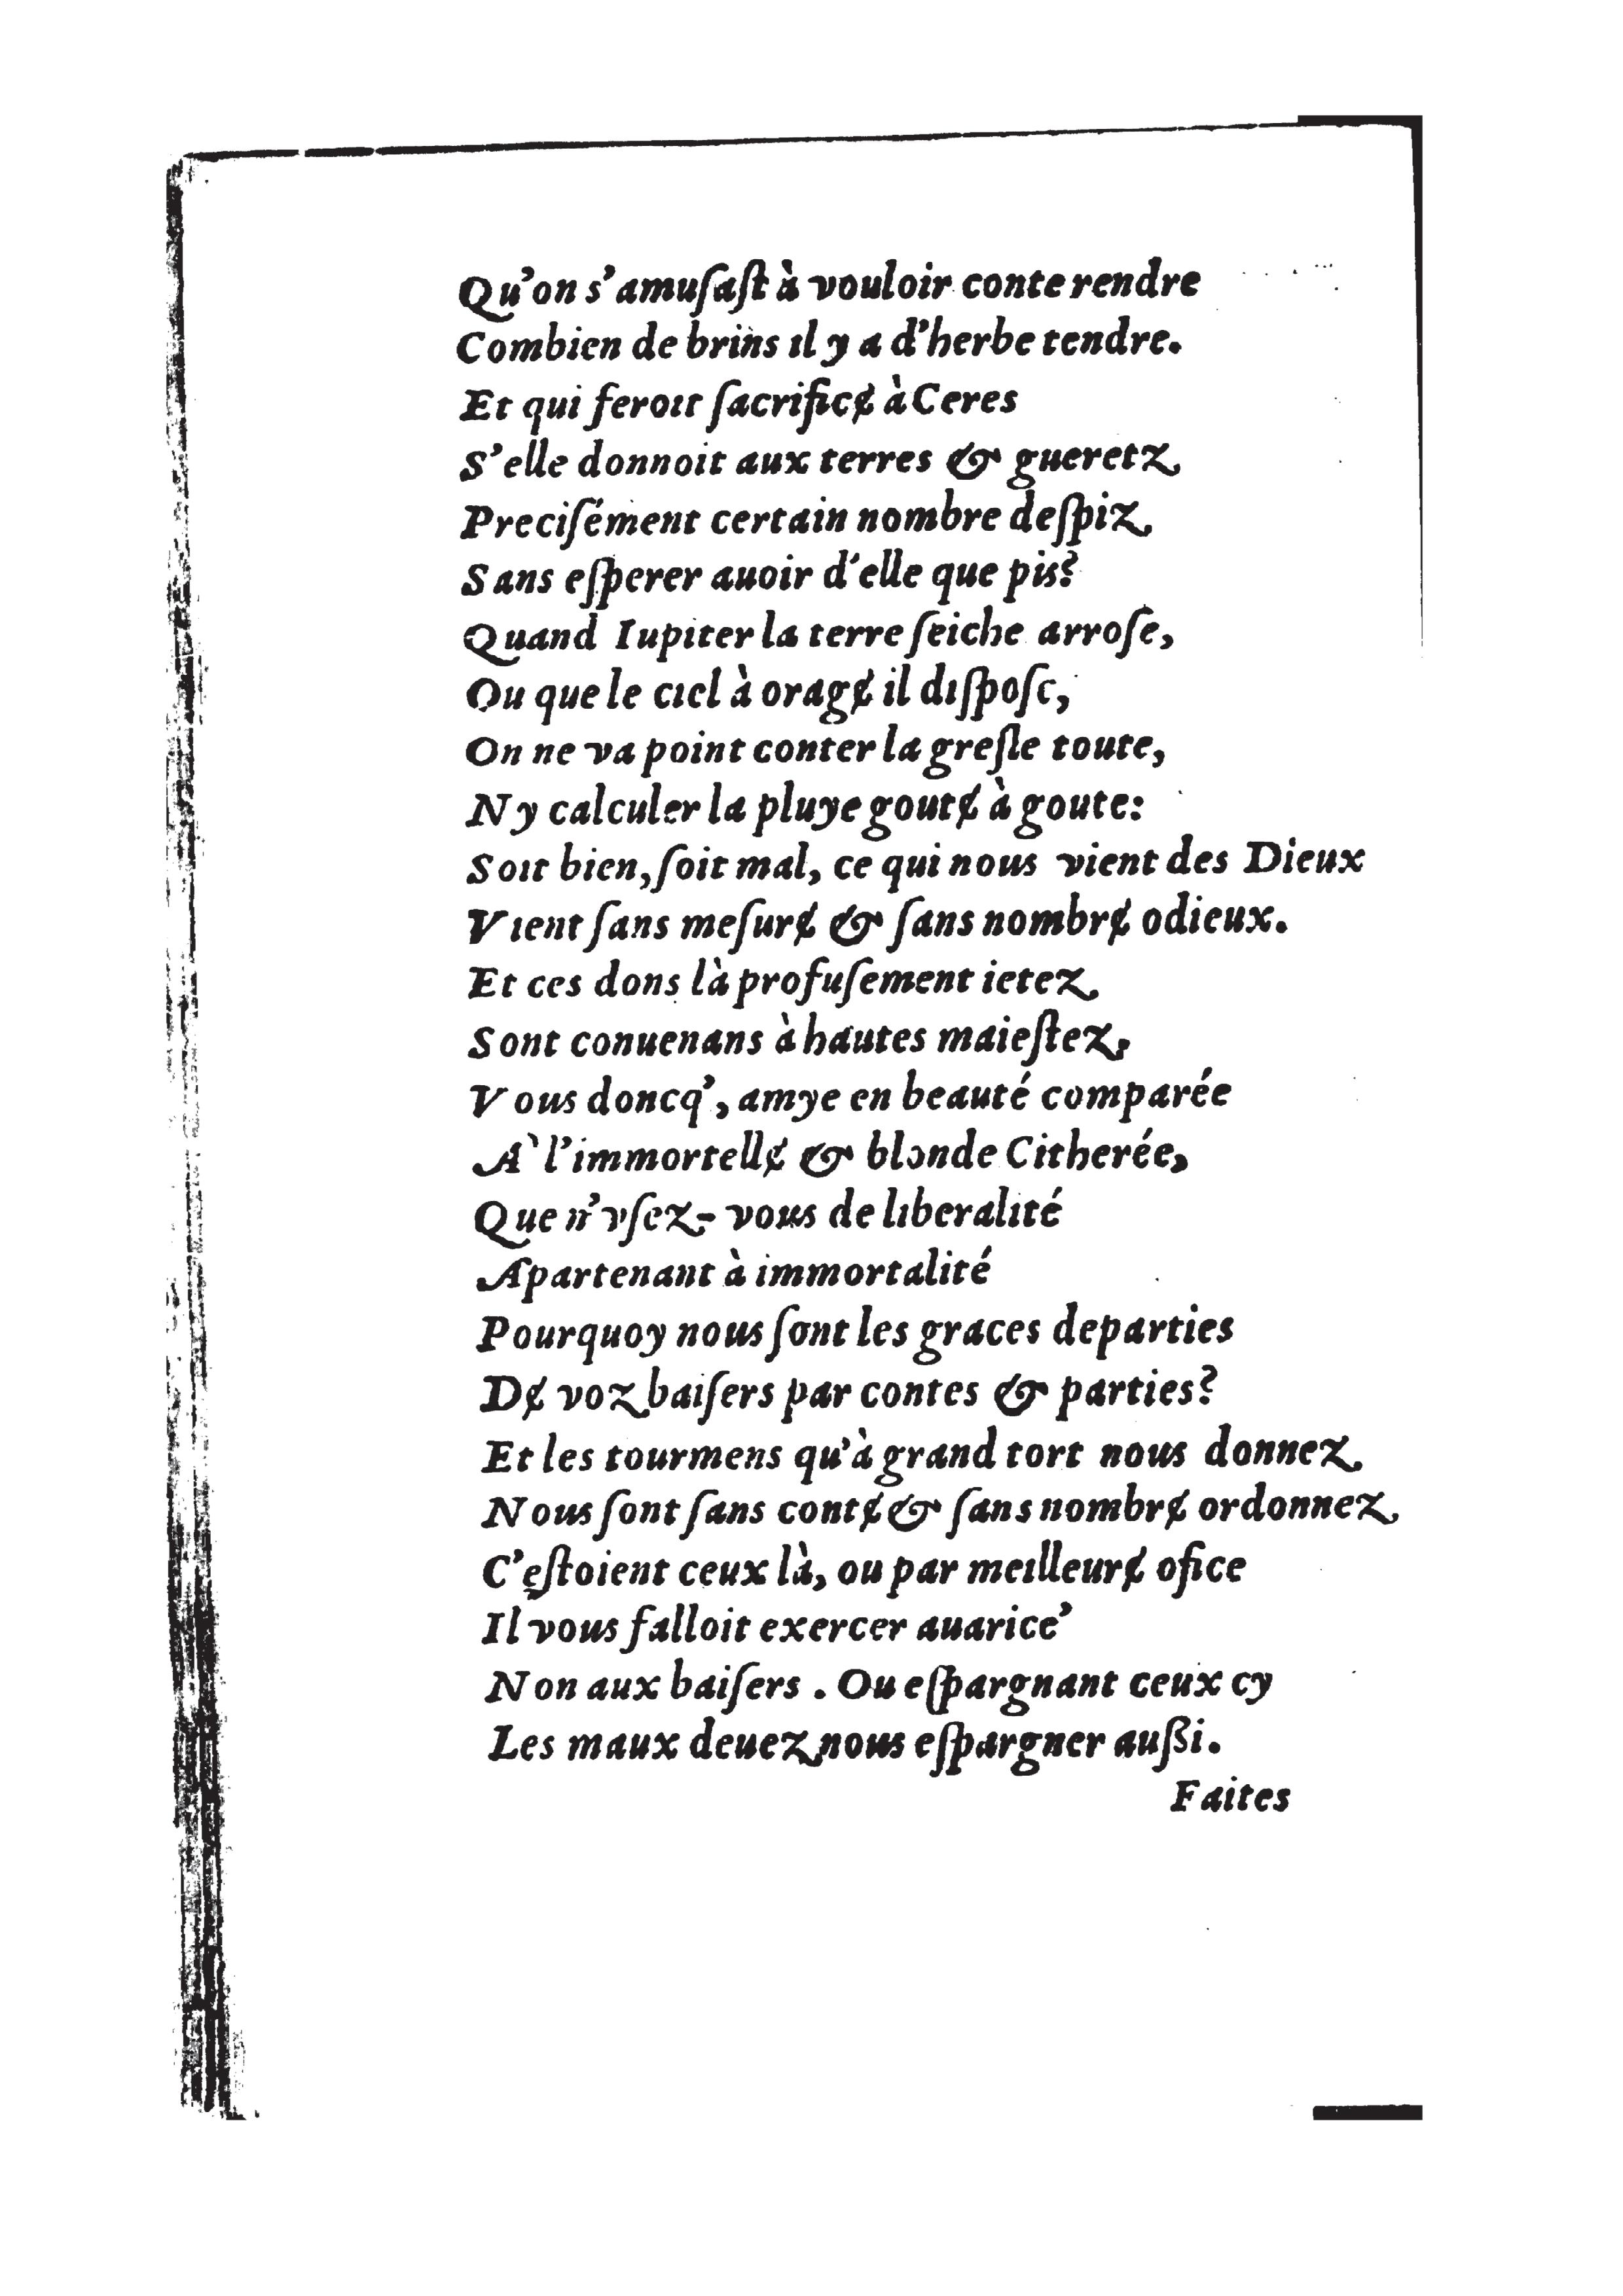 Qu'on s'amuſaſt à vouloir conte rendre
Combien de brins il y a d'herbe tendre.
Et qui feroit ſacrificɇ à Ceres
S'elle donnoit aux terres & gueretz
Preciſément certain nombre deſpiz
Sans eſperer auoir d'elle que pis?
Quand Iupiter la terre ſeiche arroſe,
Ou que le ciel à oragɇ il diſpoſe,
On ne va point conter la greſle toute,
Ny calculer la pluye goutɇ à goute:
Soit bien, ſoit mal, ce qui nous vient des Dieux
Vient ſans meſurɇ & ſans nombrɇ odieux.
Et ces dons là profuſement ietez
Sont conuenans à hautes maieſtez,
Vous doncq', amye en beauté comparée
A` l'immortellɇ & blonde Citherée,
Que n'vſez-vous de liberalité
Apartenant à immortalité
Pourquoy nous ſont les graces departies
Dɇ voz baiſers par contes & parties?
Et les tourmens qu'à grand tort nous donnez
Nous ſont ſans contɇ & ſans nombrɇ ordonnez
C'eſtoient ceux là, ou par meilleurɇ ofice
Il vous falloit exercer auarice'
Non aux baiſers. Ou eſpargnant ceux cy
Les maux deuez nous eſpargner außi.
Faites